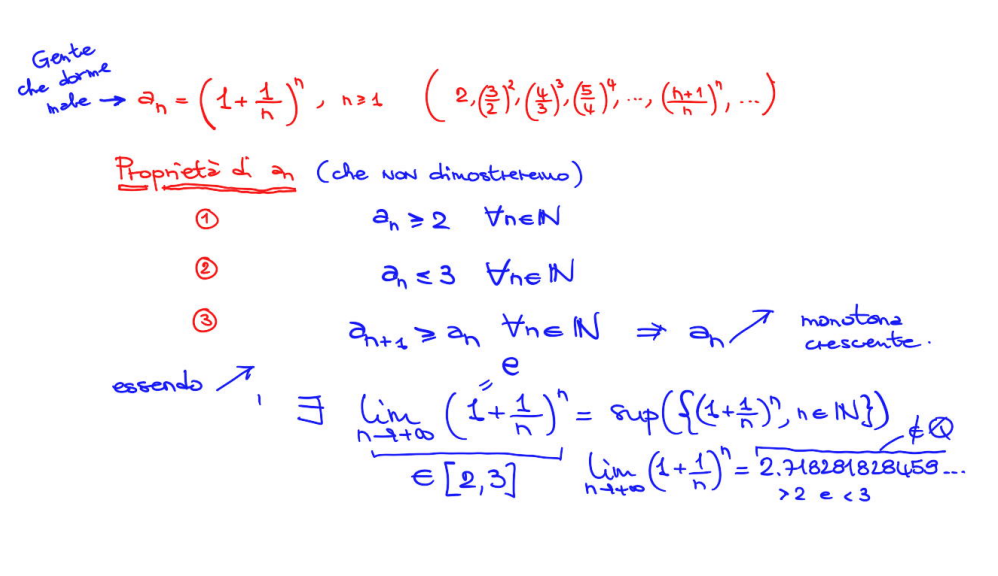 Gente
che dorme
male → aₙ = (1 + 1/n)ⁿ, n ≥ 1 (2, (3/2)², (4/3)³, (5/4)⁴, ..., ((n+1)/n)ⁿ, ...)
Proprietà di aₙ (che NON dimostreremo)
① aₙ ≥ 2 ∀n∈ℕ
② aₙ ≤ 3 ∀n∈ℕ
③ aₙ₊₁ ≥ aₙ ∀n∈ℕ ⇒ aₙ ↗ monotona
crescente.
e
=
essendo ↗, ∃ lim n→+∞ (1 + 1/n)ⁿ = sup({(1 + 1/n)ⁿ, n∈ℕ})
∉ ℚ
∈ [2,3] lim n→+∞ (1 + 1/n)ⁿ = 2.718281828459...
>2 e <3